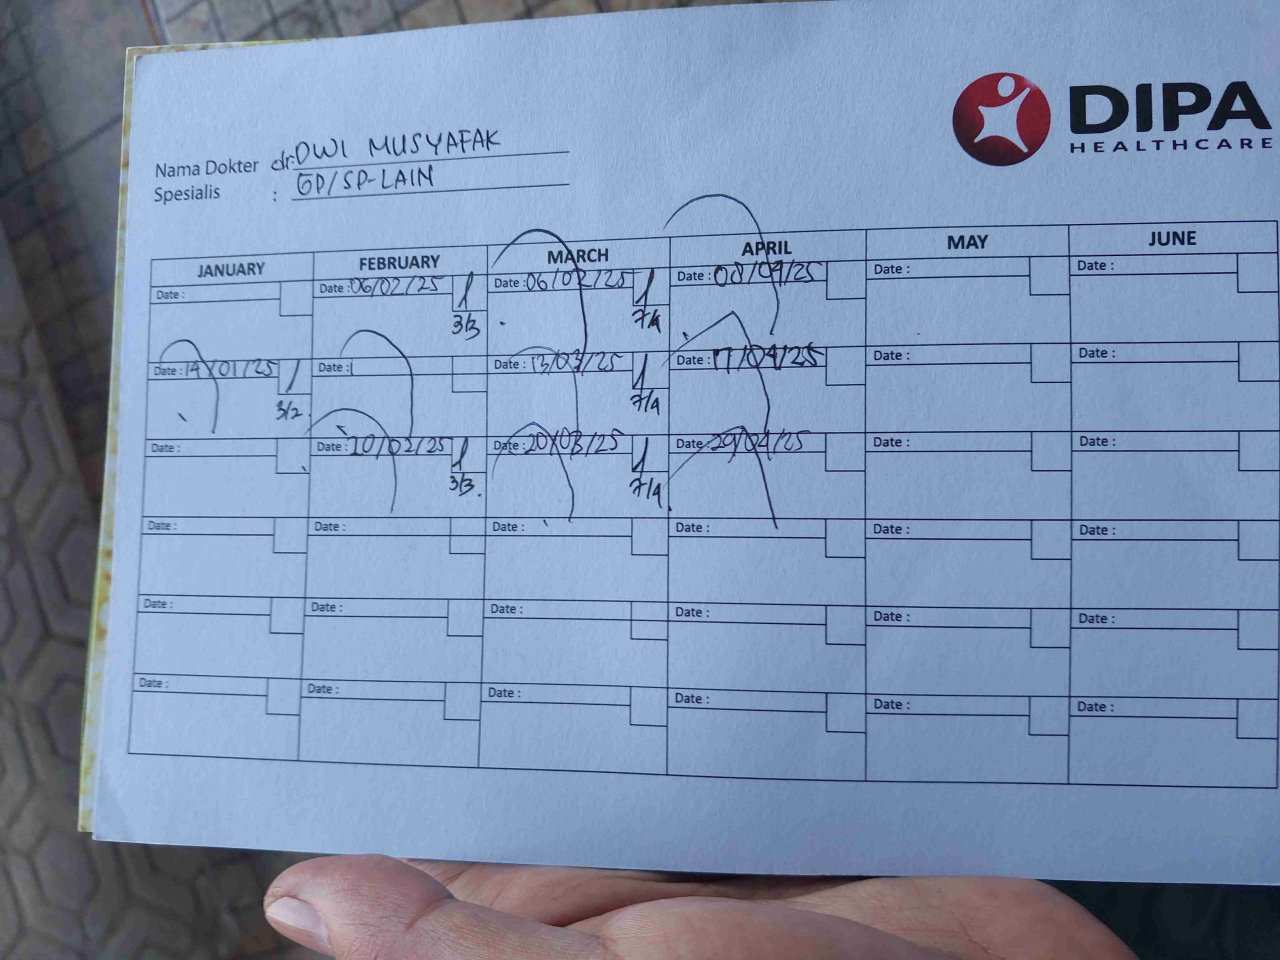 DIPA
HEALTHCARE
Nama Dokter dr. DWI MUSYAFAK
Spesialis : GP/SP-LAIN
JANUARY FEBRUARY MARCH APRIL MAY JUNE
Date : Date : 06/02/25 Date : 06/02/25 Date : 08/04/25 Date : Date :
3/3 7/4
Date : 14/01/25 Date : Date : 13/03/25 Date : 17/04/25 Date : Date :
3/2. 7/4
Date : Date : 20/02/25 Date : 20/03/25 Date : 29/04/25 Date : Date :
3/3. 7/4
Date : Date : Date : Date : Date : Date :
Date : Date : Date : Date : Date : Date :
Date : Date : Date : Date : Date : Date :